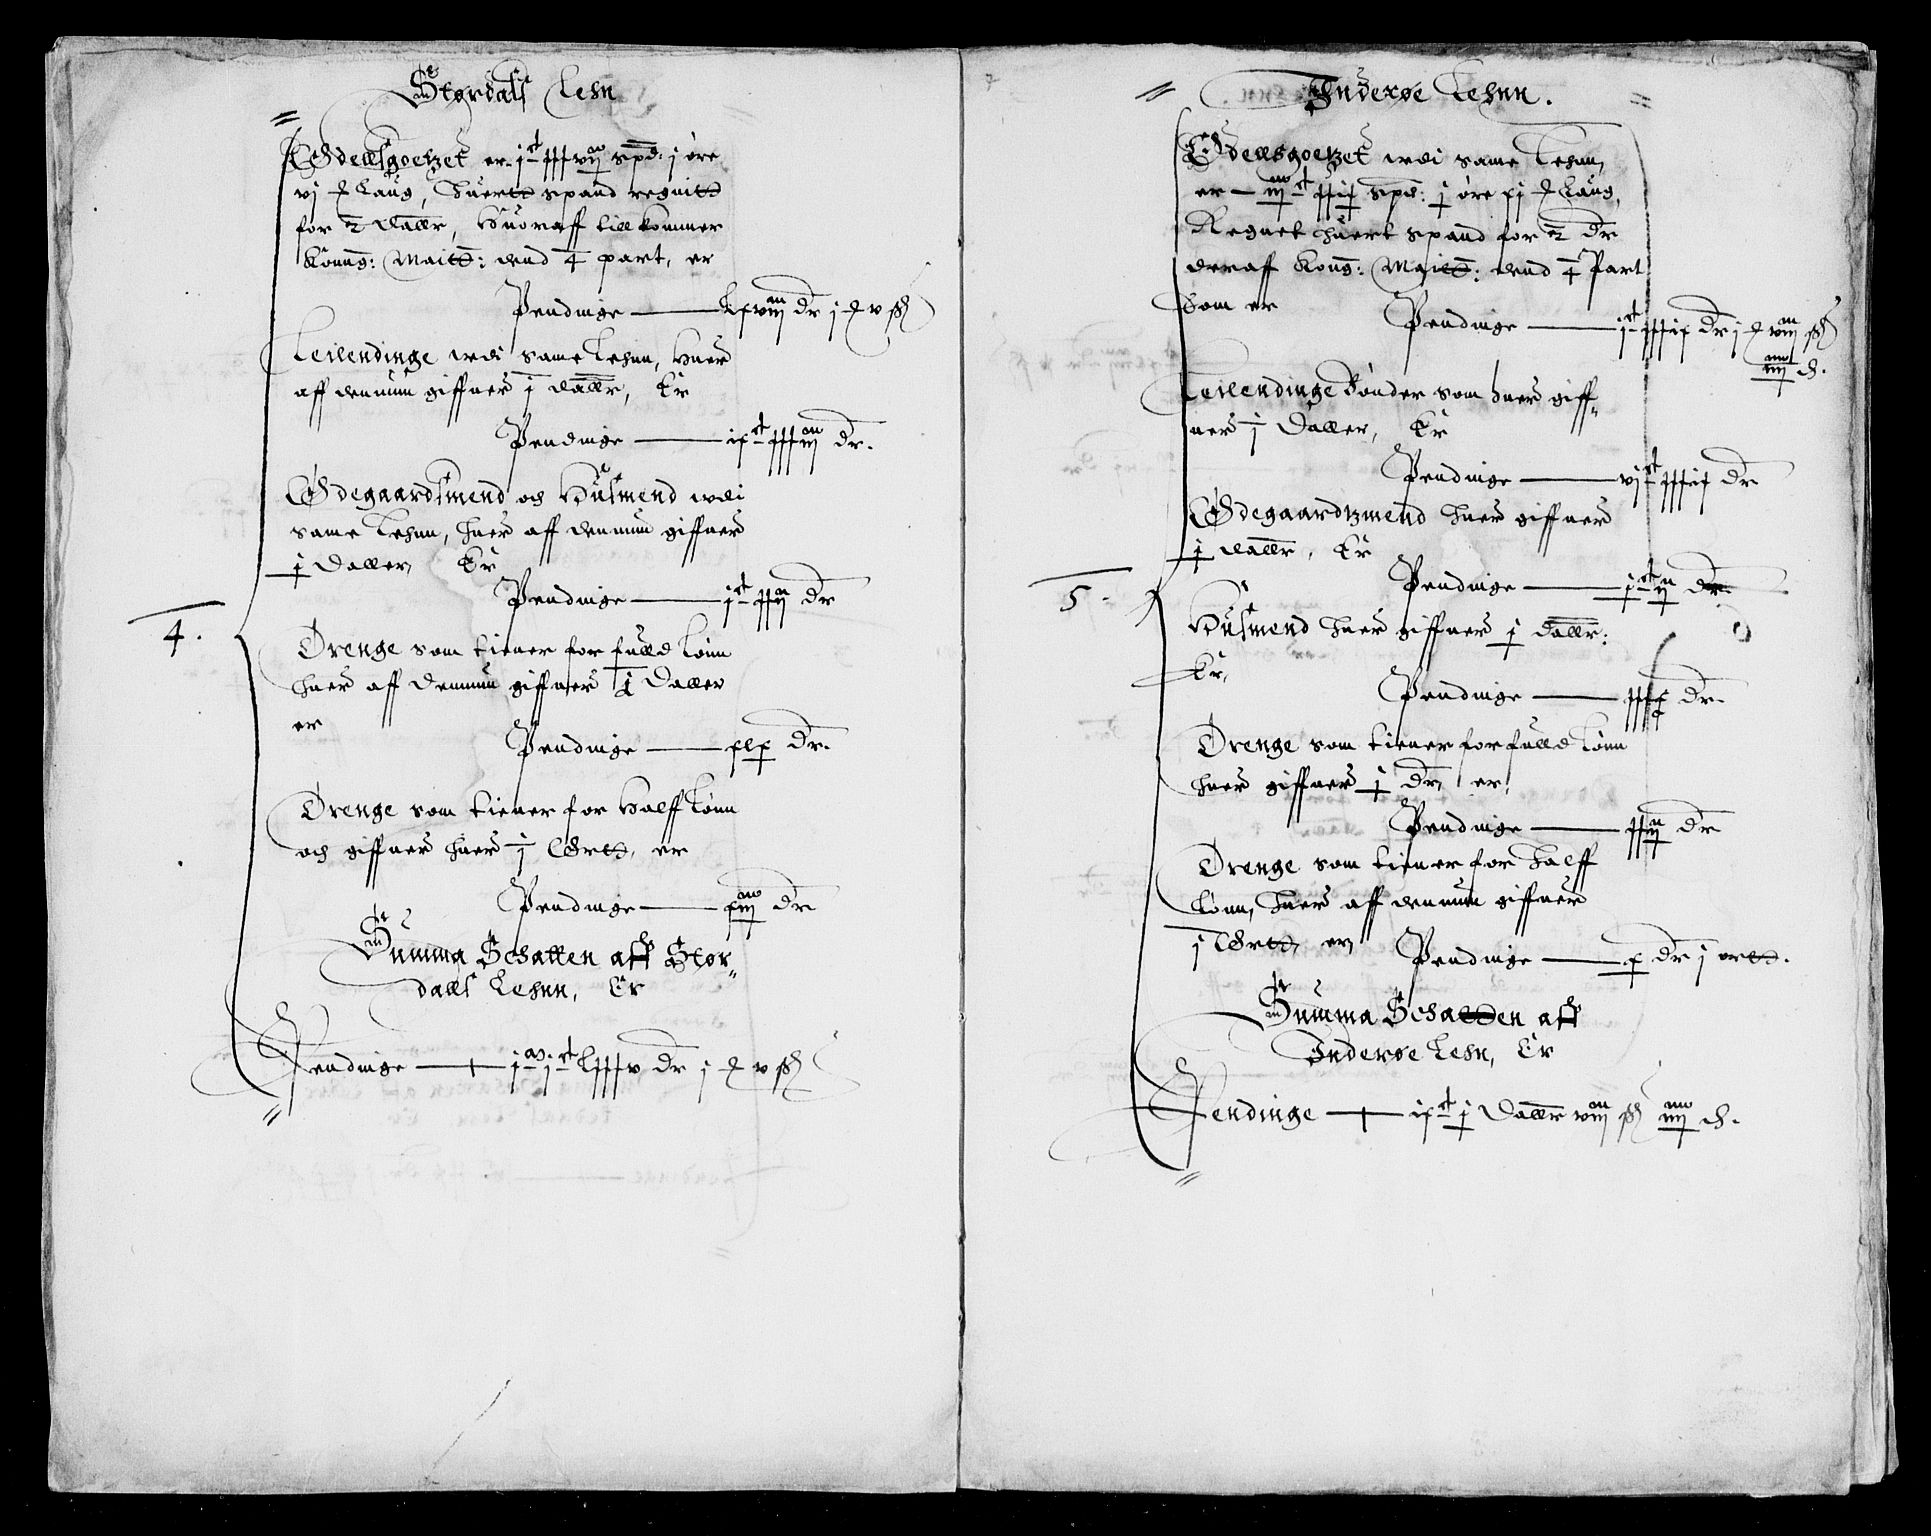 Størdals Lehn
Odellsgoetzet er j^c xxxvij spd: j øre
vj ℥ Laug, Huertt spand regnitt
for 2 dallr, Huoraff till kommer
Konng: Maitt: dend 1/4 part, er
Pendinge — lxviij dr j ℥ v ß
Leilendinge udi same Lehnn, Huer
aff dennum giffuer j dallr, Er
Pendinge — ix^c xxxiij dr.
Ødegaardsmend och Husmend udi
same Lehnn, huer aff dennum giffuer
j Daller, Er
Pendinge — j^c xxij dr
4.
Drenge som tiener for fulld Lønn
huer aff dennum giffuer j Daller
er
Pendinge — xlx dr.
Drenge som tiener for Halff Lønn
och giffuer huer j Ortt, er
Pendinge — xiij dr
Summa Schatten aff Stør-
dalls Lehnn, Er
Pendinge — j^m j^c lxxxv dr j ℥ v ß
Inderøe Lehnn.
Odellsgoetzet udi same Lehnn,
er — iij^c xxix spd: j øre xj ℥ Laug,
Regnet huert spand for 2 dr
deraff Kong: Maitt: dend 1/4 Part
Som er
Pendinge — j^c xxxix dr j ℥ viij ß
iiij d.
Leilendinge Bønder som huer giff-
uer j Daller, Er
Pendinge — vj^c xxxix dr
Ødegaardtzmend huer giffuer
j dallr, Er
Pendinge — j^c ij dr.
5.
Husmend huer giffuer j dallr:
Er,
Pendinge — xxxx dr.
Drenge som tiener for fulld Lønn
huer giffuer j dr, er,
Pendinge — xxij dr
Drenge som tiener for halff
Lønn, huer aff dennum giffuer
j Ortt, er
Pendinge — x dr j ortt.
Summa Schatten aff
Inderøe Lehn, Er
Pendinge — ix^c j Dallr viij ß iiij d.